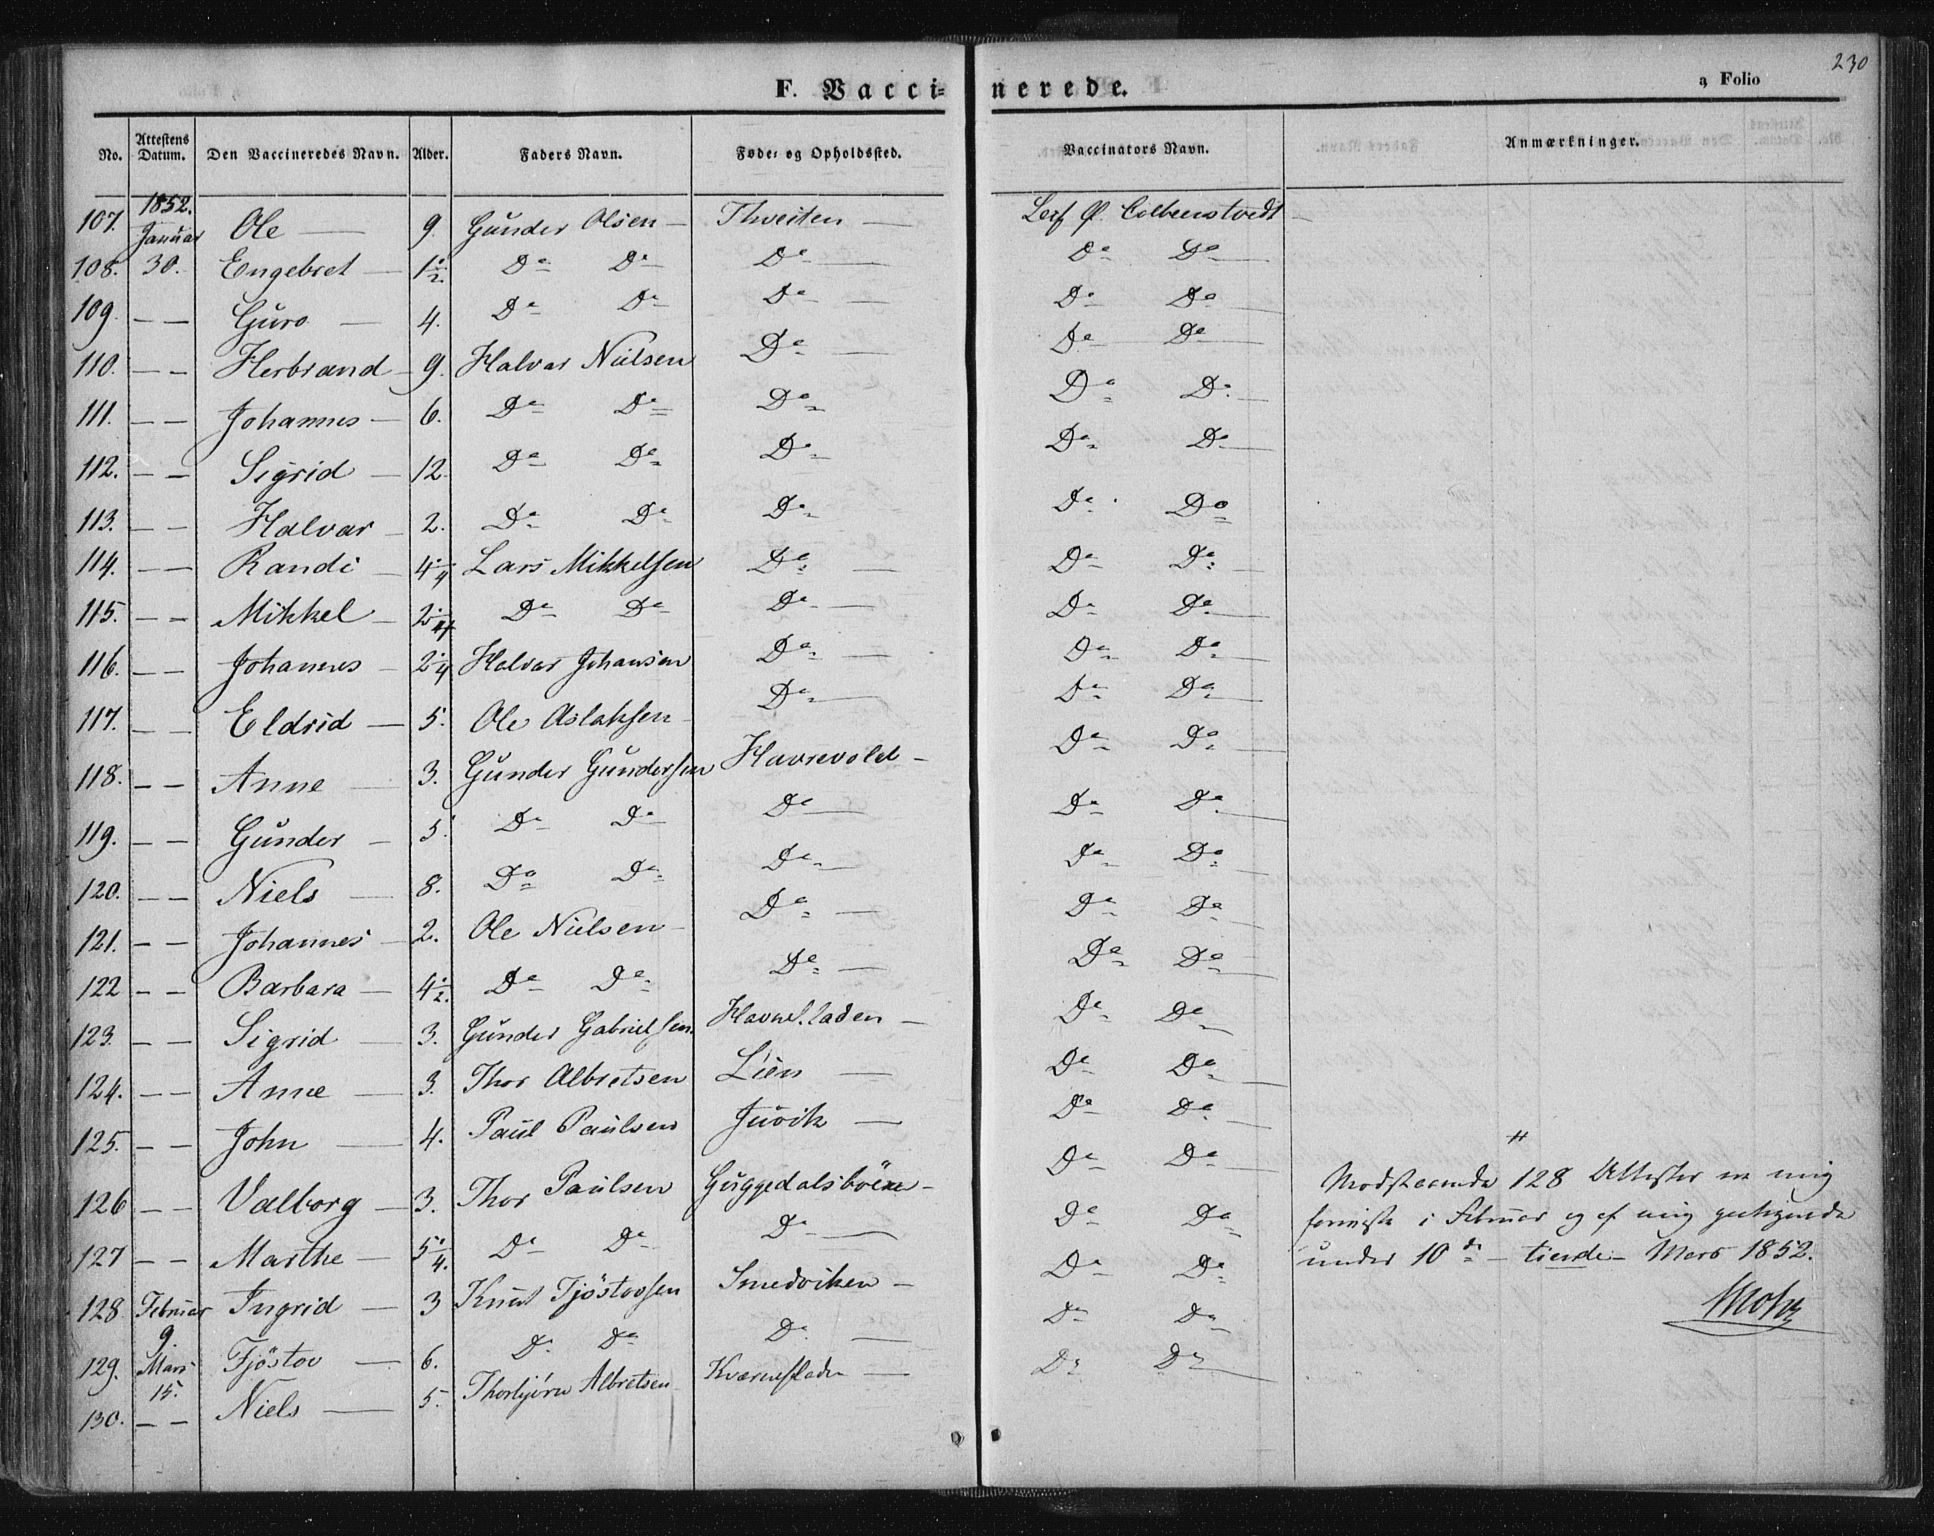 230
F. Vaccinerede.
a Folio
No. Attestens Datum. Den Vaccineredes Navn. Alder. Faders Navn. Føde- og Opholdssted. Vaccinators Navn. Anmærkninger.
1852.
107. Januar Ole — 9. Gunder Olsen — Thveiten — Leif Ø. Colbeenstvedt
108. 30. Engebret — 1½. Do Do Do — Do Do
109. — — Guro — 4. Do Do Do — Do Do
110. — — Herbrand — 9. Halvar Nielsen Do — Do Do
111. — — Johannes — 6. Do Do Do Do Do
112. — — Sigrid — 12. Do Do Do Do Do
113. — — Halvar — 2. Do Do Do Do Do
114. — — Randi — 4¼ Lars Mikkelsen Do — Do Do
115. — — Mikkel — 2¼ Do Do Do — Do Do
116. — — Johannes — 2¼ Halvar Johansen Do — Do Do
117. — — Eldrid — 5. Ole Aslaksen — Do — Do Do
118. — — Anne — 3. Gunder Gundersen Havrevold — Do Do
119. — — Gunder — 5. Do Do Do — Do Do
120. — — Niels — 8. Do Do Do — Do Do
121. — — Johannes — 2. Ole Nielsen — Do — Do Do
122 — — Barbara — 4½. Do Do Do — Do Do
123. — — Sigrid — 3. Gunder Gabrielsen Do Do
124. — — Anne — 3. Thor Albretsen Lien — Do Do
125. — — John — 4. Paul Paulsen Juvik — Do Do
126 — — Valborg — 3. Thor Paulsen Guggedalsböen — Do Do
127 — — Marthe — 5¼. Do Do Do — Do Do
128 Februar 9. Ingrid — 3 Knut Tjöstovsen Smedviken — Do Do
129. Mars 15. Tjöstov — 6. Do Do Do — Do Do
130. — — Niels — 5. Thorbjörn Albretsen Do Do
Modstaaende 128 Attester ere mig
i Februar og af mig
under 10de — tiende — Mars 1852.